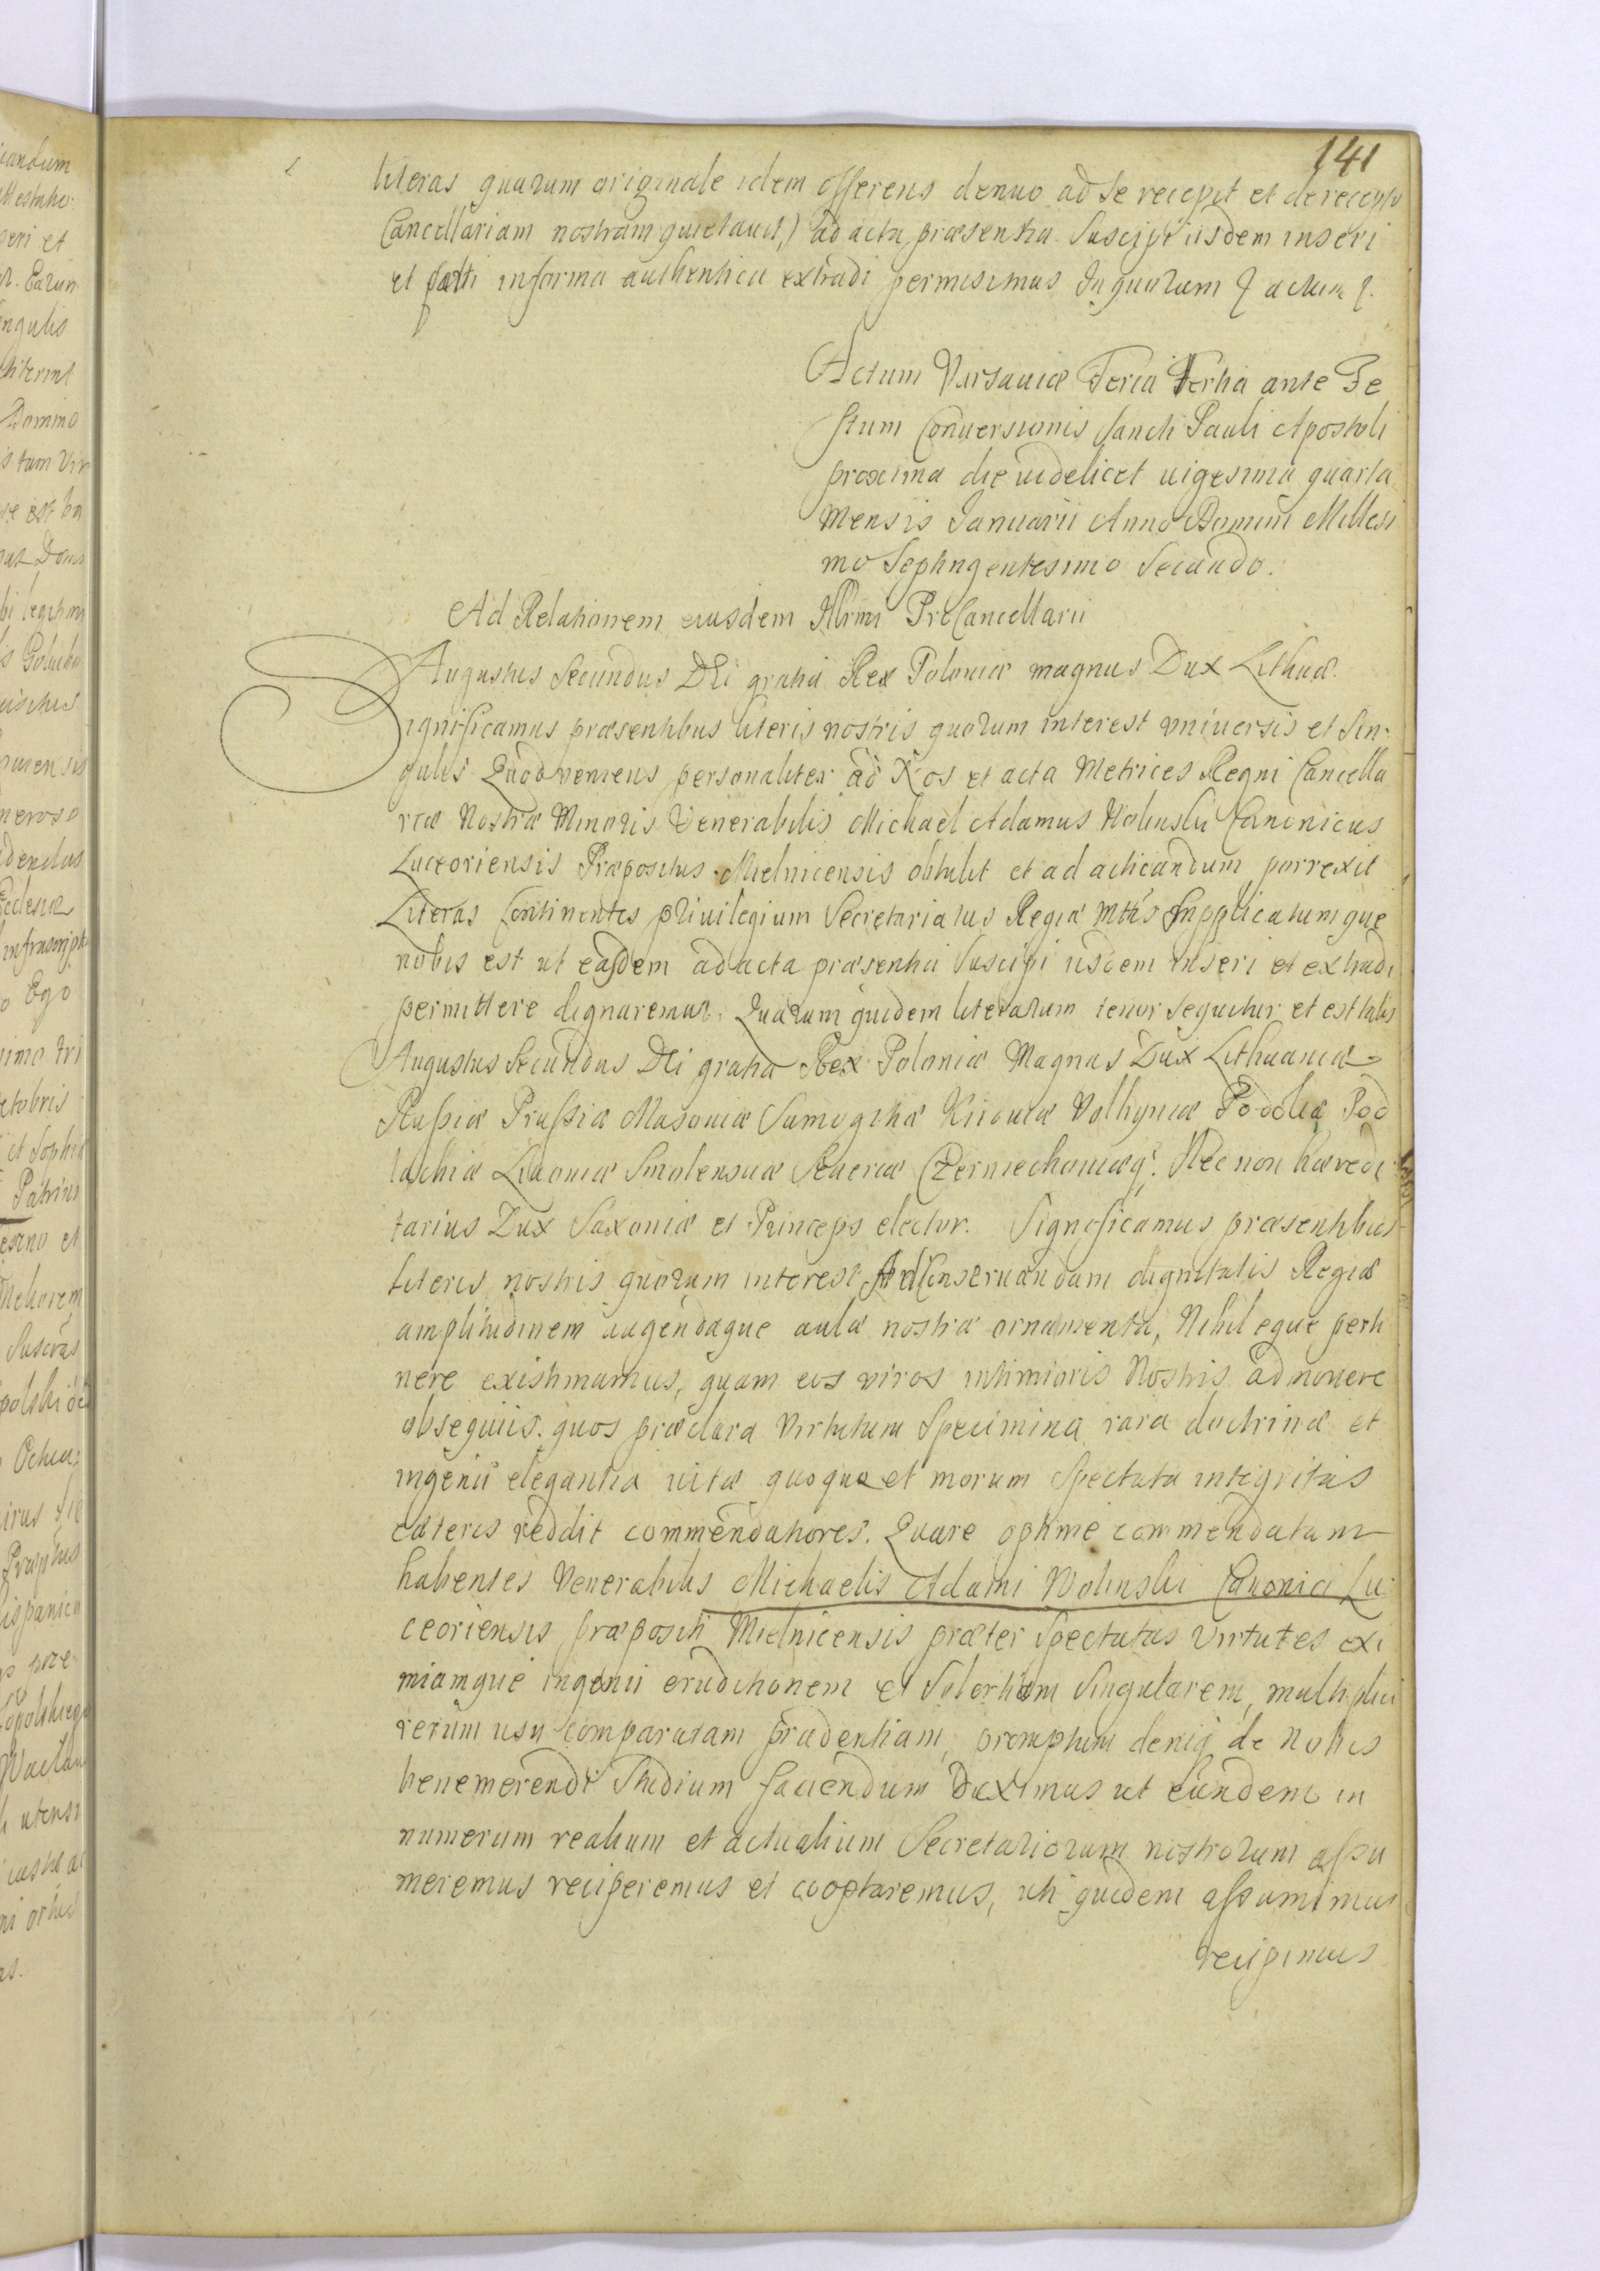 141
literas quarum originale idem offerens denuo ad se recepit et de recepto
Cancellariam nostram quietauit,) ad acta præsentia suscipi iisdem inseri
et parti in forma authentica extradi permisimus In quorum actum
Actum Varsauiæ Feria Tertia ante Fe
stum Conuersionis Sancti Pauli Apostoli
proxima die uidelicet uigesima quarta
Mensis Januarii Anno Domini Millesi
mo Septingentesimo Secundo.
Ad Relationem eiusdem Illrmi ProCancellarii
Augustus Secundus DEi gratia Rex Poloniæ magnus Dux Lithuæ.
Significamus præsentibus literis nostris quorum interest vniuersis et Sin-
gulis Quod veniens personaliter ad Nos et acta Metrices Regni Cancella
riæ Nostræ Minoris Venerabilis Michael Adamus Wolinski Canonicus
Luceoriensis Præpositus Mielnicensis obtulit et ad acticandum porrexit
Literas Continentes priuilegium Secretariatus Regiæ Mttis Supplicatumque
nobis est ut easdem ad acta præsentia Suscipi iisdem inseri et extradi
permittere dignaremur. Quarum quidem literarum tenor sequitur et est talis
Augustus Secundus DEi gratia Rex Poloniæ Magnus Dux Lithuaniæ
Rußiæ Prußiæ Masouiæ Samogitiæ Kiiouiæ Volhyniæ Podoliæ Pod
lachiæ Liuoniæ Smolensciæ Seueriæ Czerniechouiæq. Nec non hæredi
tarius Dux Saxoniæ et Princeps elector. Significamus præsentibus
literis nostris quorum interest Ad Conseruandam dignitatis Regiæ
amplitudinem augendaque aulæ nostræ ornamenta, Nihil eque perti
nere existimamus, quam eos viros intimioris Nostris admouere
obsequiis. quos præclara Virtutum Specimina rara doctrinæ et
ingenii elegantia uitæ quoque et morum Spectata integritas
cæteris reddit commendatiores. Quare optime commendatam
habentes Venerabilis Michaelis Adami Wolinski Canonici Lu-
ceoriensis præpositi Mielnicensis præter Spectatas Virtutes exi
miamque ingenii eruditionem et Solertiam Singularem, multiplici
rerum usu comparatam prudentiam, promptum deniq de Nobis
benemerendi Studium faciendum Duximus ut eundem in
numerum realium et actualium Secretariorum nostrorum aßu
meremus reciperemus et cooptaremus, uti quidem aßumimus
recipimus